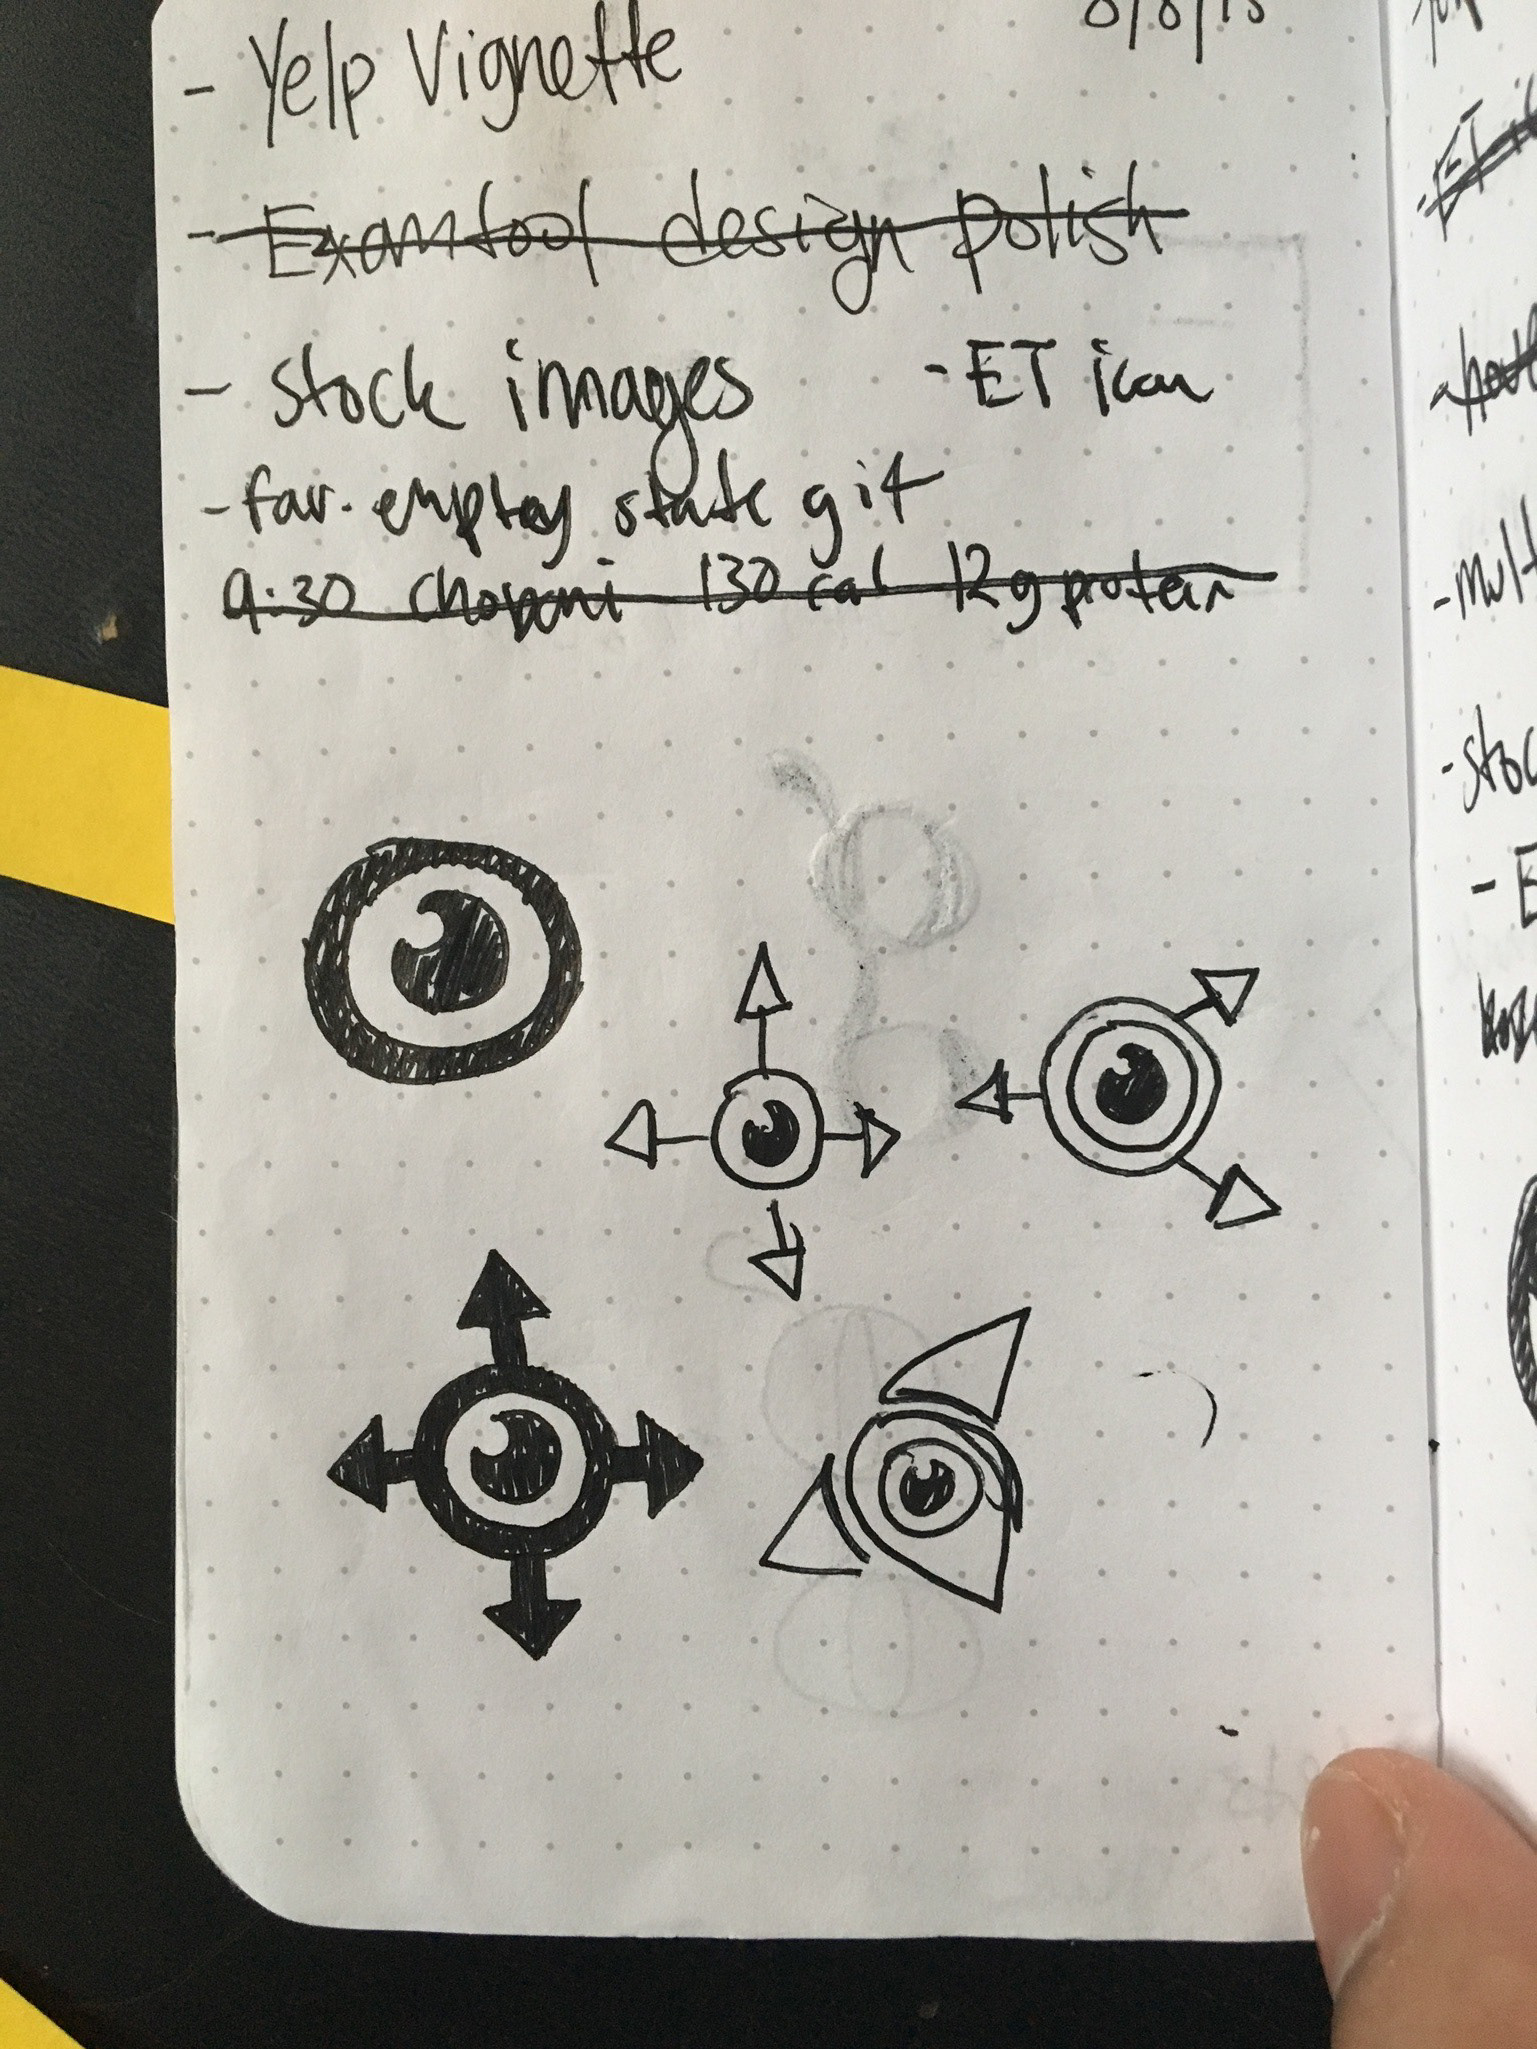 8/8/15
- Yelp Vignette
- Examtool design polish
- Stock images - ET icon
- fav. emptey state git
9:30 Chobani 130 cal 12g protein
- mult
- stoc
- E